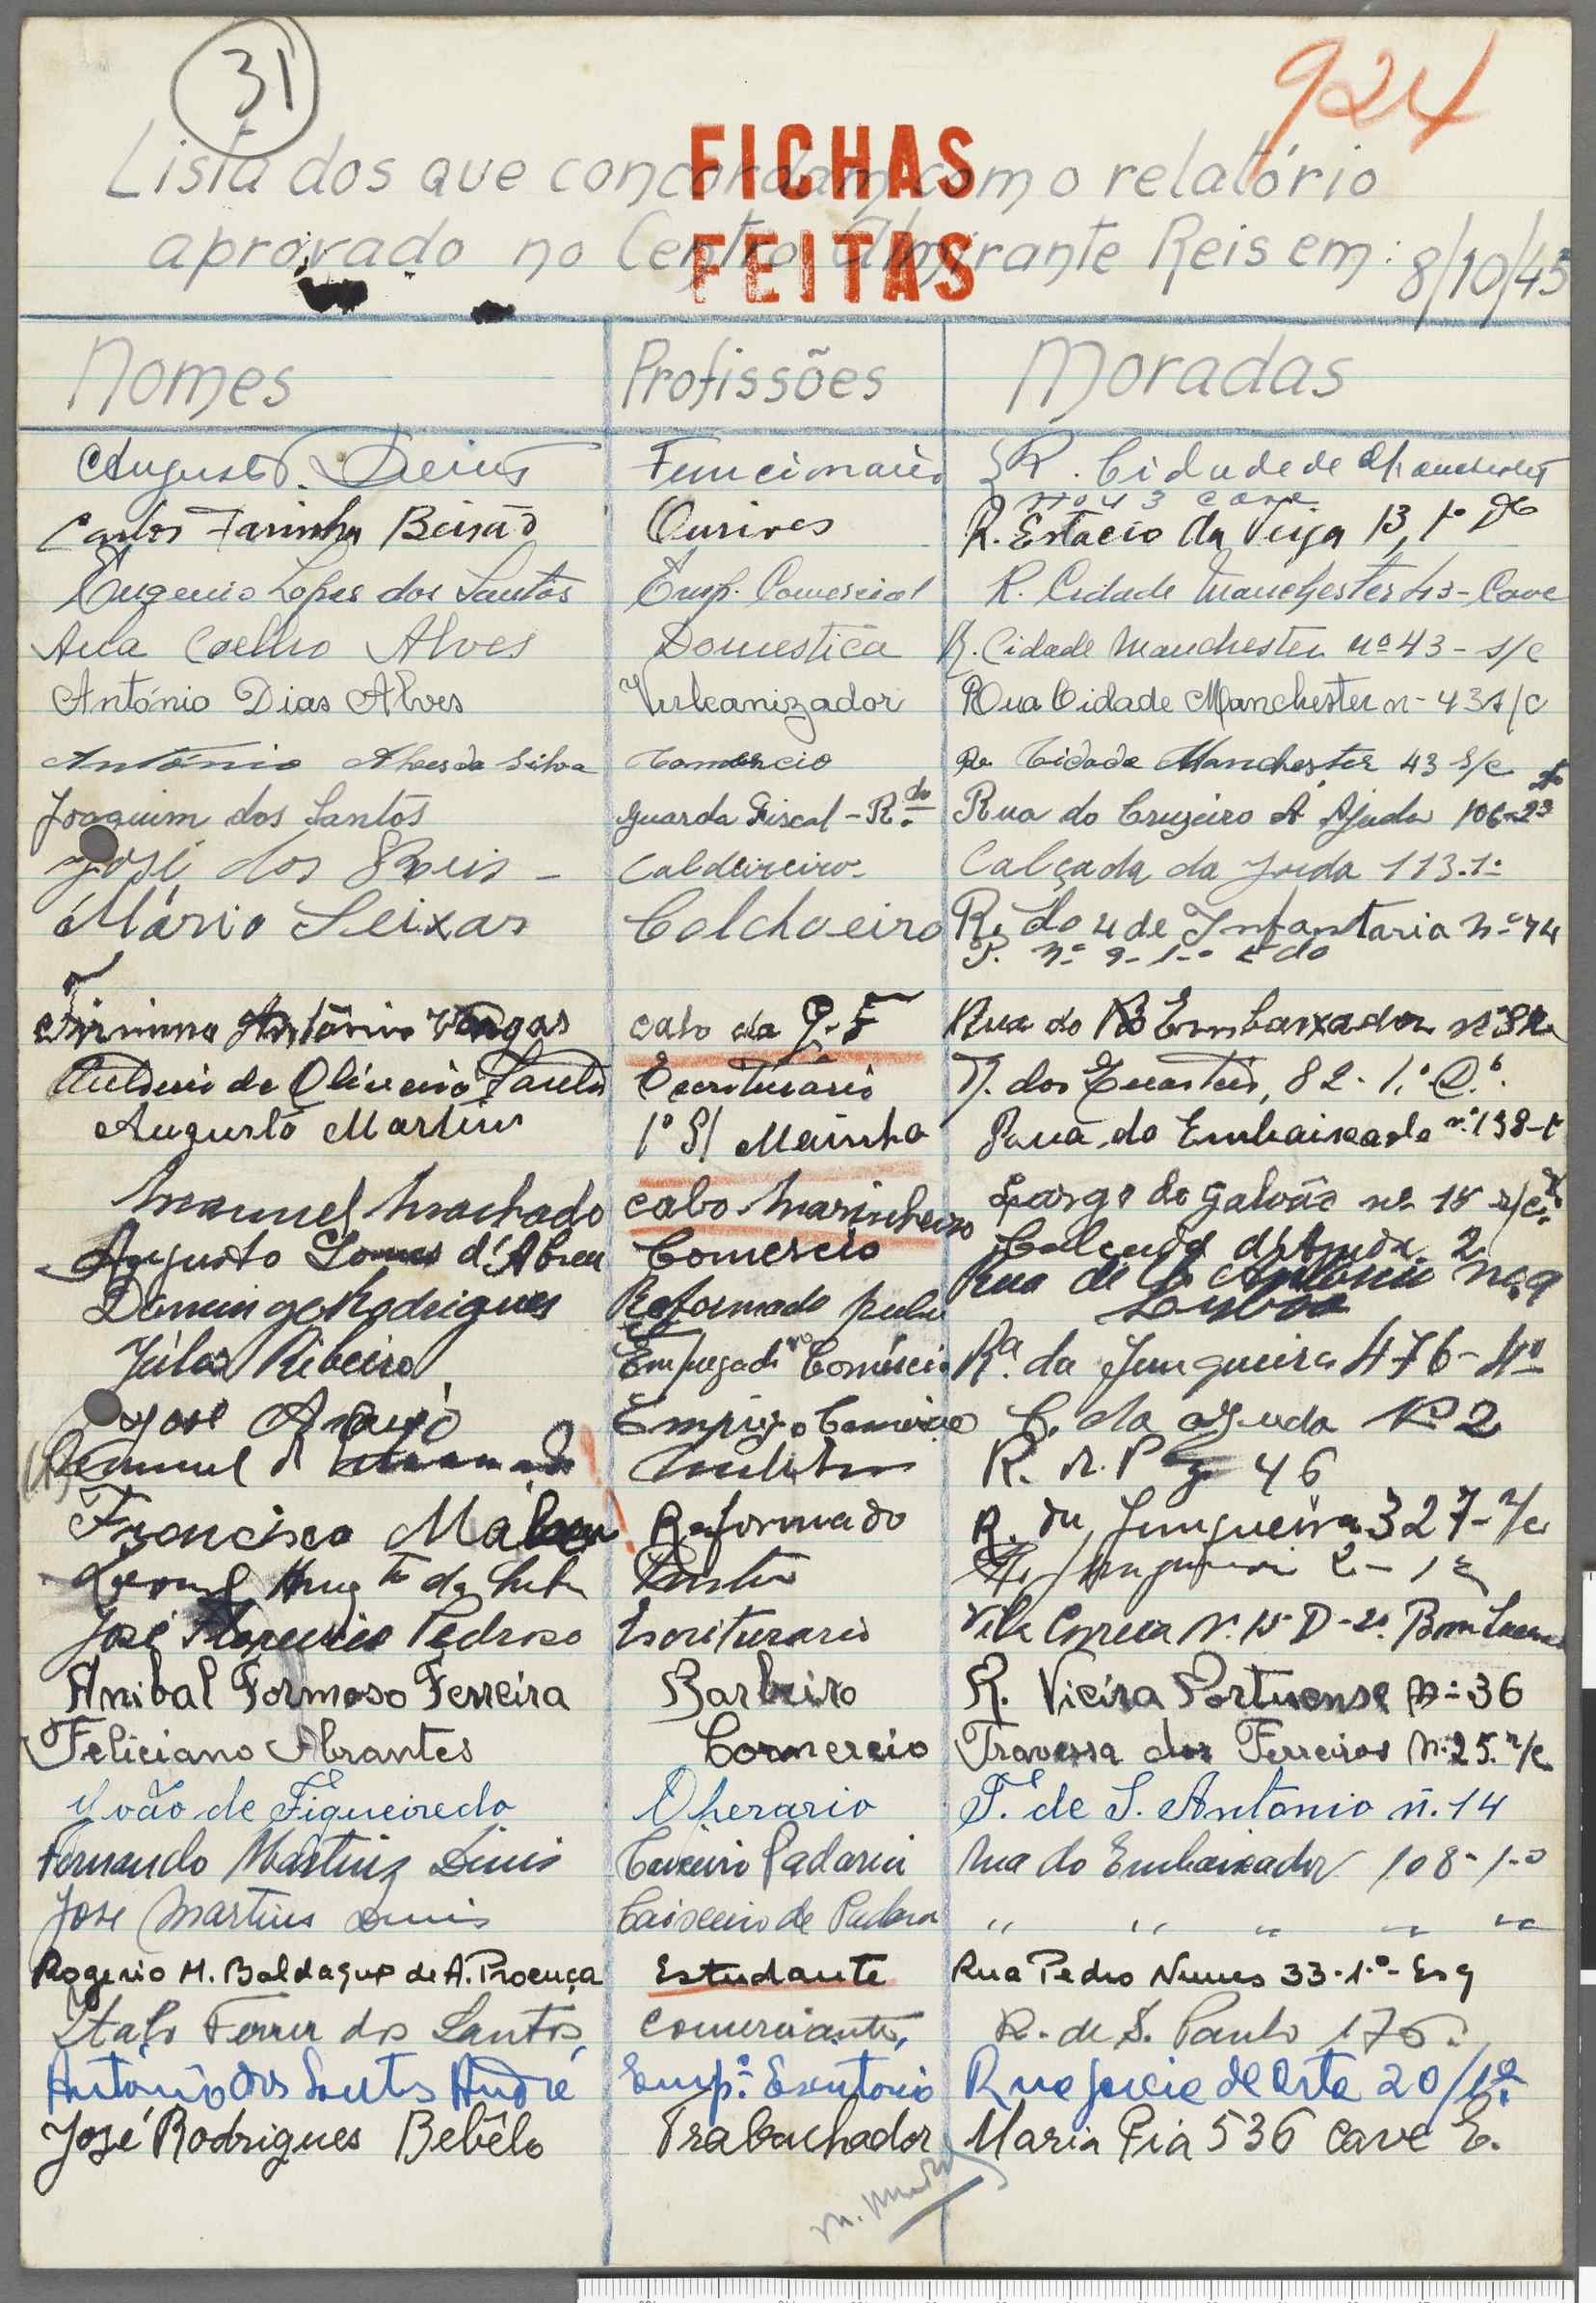 31
924
Lista dos que concordam com o relatório
FICHAS
aprovado no Centro Almirante Reis em: 8/10/45
FEITAS
Nomes Profissões Moradas
Augusto Funcionario R. Cidade de Manchester
nº 43 cave
Carlos Farinha Beirão Ourives R. Estacio da Veiga 13, 1º
Eugenio Lopes dos Santos Emp. Comercial R. Cidade Manchester 43-Cave
Ana Coelho Alves Domestica R. Cidade Manchester nº 43 - s/c
António Dias Alves Vulcanizador Rua Cidade Manchester n- 43 s/c
António Alves da Silva Comercio Ra Cidade Manchester 43 s/c
Joaquim dos Santos guarda Fiscal - R.do Rua do Cruzeiro Á Ajuda 106-
José dos Reis - Caldeireiro- Calçada da Juda 113.1º
Mário Seixas Colchoeiro R. do 4 de Infantaria nº 74
P. nº 9-1-º
Firmino António Vargas cabo da G. F Rua do Embaixador nº
de Oliveira Santos Escriturario T. dos Quarteis, 82-1.º D.º
Augusto Martins 1º S/ Marinha Rua do Embaixador nº 138-
Manuel Machado cabo Marinheiro Largo do Galvão nº 18 r/c
Augusto Gomes d'Abreu Comercio Calçada d'Ajuda 2
Domingo Rodrigues Reformado Rua de Sto Antonio nº 9
Lisboa
Júlio Ribeiro Empregado no Comércio Rª. da Junqueira 476-4º
José Araujo Empreg. Comercio C. da Ajuda Nº 2
Manuel R. 46
Francisco Reformado R. da Junqueira 327-r/c
2-1º
José Pedroso Escriturario Vila Correia N. 15-D-2º.
Anibal Formoso Ferreira Barbeiro R. Vieira Portuense nº 36
Feliciano Abrantes Comercio Travessa dos Ferreiros N. 25. r/c
João de Figueiredo Operario T. de S. António n. 14
Fernando Martins Dinis Caixeiro Padaria Rua do Embaixador 108-1-º
Jose Martins Dinis Caixeiro de Padaria " " " " "
Rogerio M. Baldaque de A. Proença Estudante Rua Pedro Nunes 33-1.º-Esq
Italo Ferrer dos Santos Comerciante, R. de S. Paulo
António dos Santos André Emp.º Escritorio Rua 20/1º
José Rodrigues Bebêlo Trabachador Maria Pia 536 cave E.